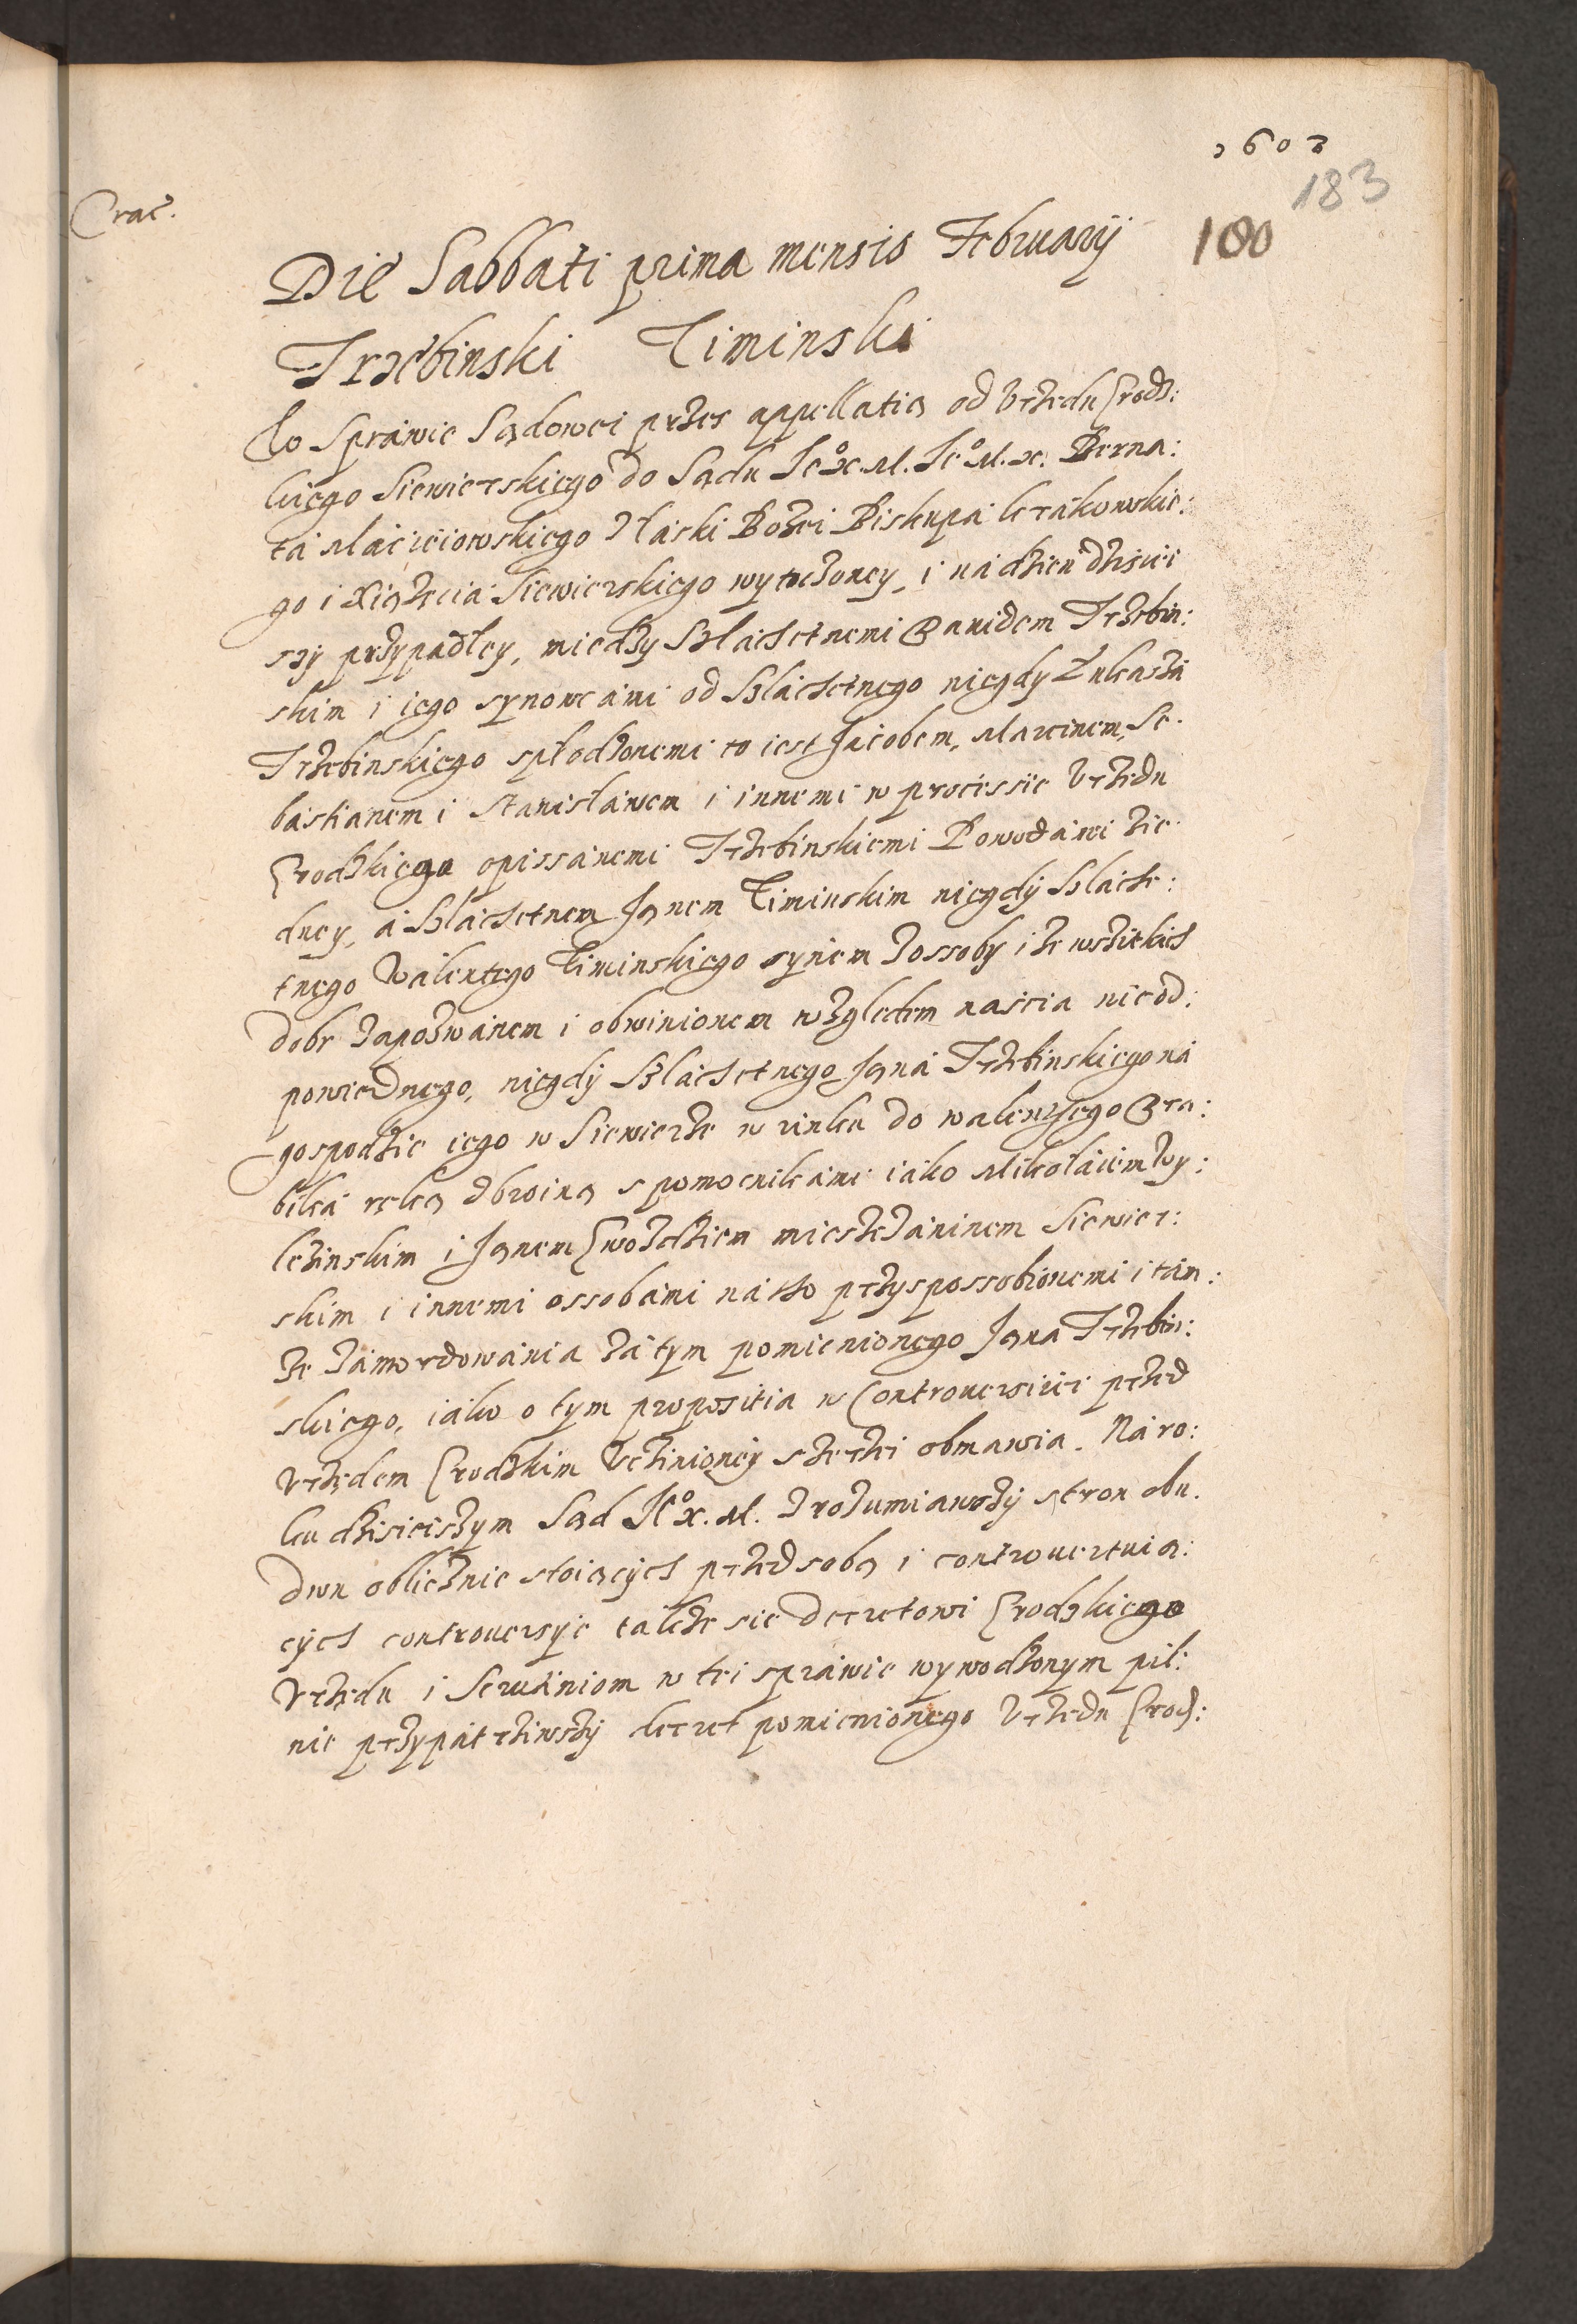 1602
183
Crac.
180
Die Sabbati prima mensis Februarij
Trzebinski Ciminski
Wo Sprawie Sądowei przes appellatią od Vrzędu Grodz:
kiego Siewierskiego do Sądu Jeo X. M. Jeo M. X. Berna:
ta Macieiowskiego z łaski Bozei Biskupa krakowskie:
go i Xiążecia Siewierskiego wytoczoney, i na dzien dzisiei
szy przypadłey, miedzy Szlachetnemi Dawidem Trzebin:
skim i iego synowcami od Szlachetnego niegdy Łukasza
Trzebinskiego spłodzonemi to iest Jacobem, Marcinem, Se.
bastianem i Stanisławem i innemi w processie Vrzędu
Grodzkiego opissanemi Trzebinskiemi Powodami zie.
dney, a Szlachetnem Janem Ciminskim niegdy Szlache:
tnego Walentego Ciminskiego synem z ossoby i ze wszitkich
dobr zapozwanem i obwinionem względem nascia nieod:
powiednego, niegdy Szlachetnego Jana Trzebinskiego na
gospodzie iego w Siewierze w rinku do walentego Bra:
bika ręką zbroiną s pomocnikami iako Mikołaiem Wy:
leżinskim i Janem Gwozdziem mieszczaninem Siewier:
skim i innemi ossobami na tho przyspossobionemi i tam:
ze zamordowania zatym pomienionego Jana Trzebin:
skiego, iako o tym propositia w Controuersiiei przed
Vrzędem Grodzkim Vczinioney szerzei obmawia. Na ro:
ku dzisieiszym Sąd Jeo X. M. zrozumiawszy stron obu.
dwu oblicznie stoiących przed sobą i controuertuią:
cych controuersyie takze sie decretowi Grodzkiego
Vrzędu i Scrutiniom w tei sprawie wywodzonym pil:
nie przypatrziwszy decret pomienionego Vrzędu Grod: